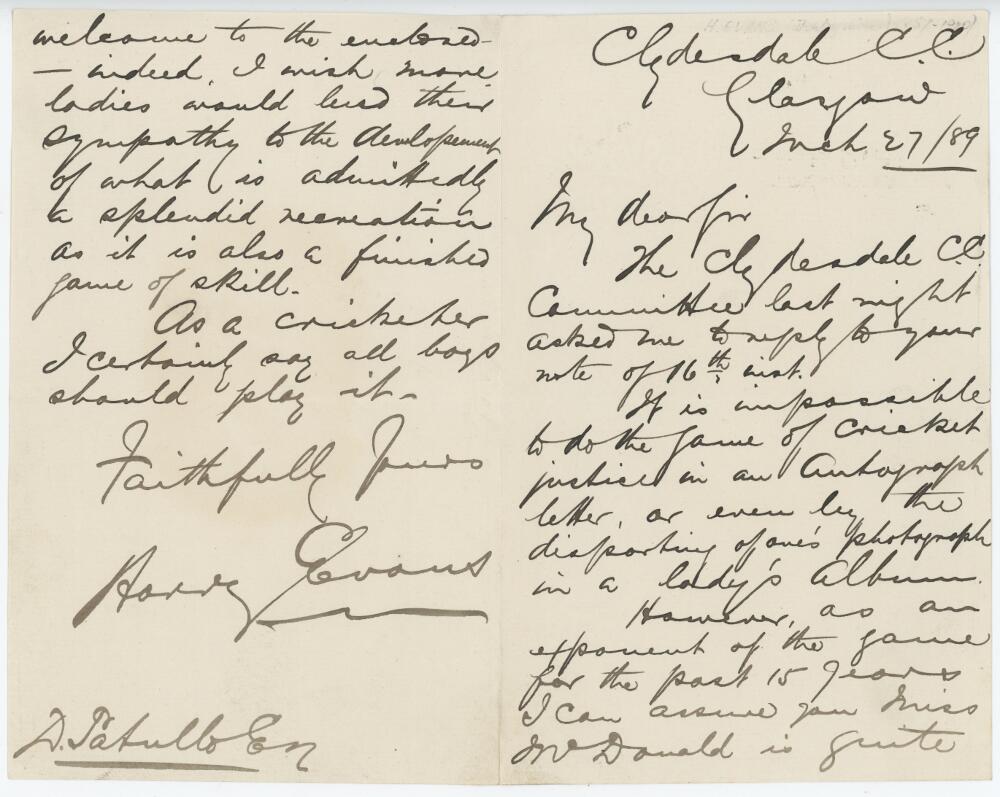 Clydesdale C.C.
Glasgow
Mch 27/89
My dear Sir
The Clydesdale C.C.
Committee last night
asked me to reply to your
note of 16th inst.
It is impossible
to do the game of cricket
justice in an Autograph
letter, or even by the
disporting of one's photograph
in a lady's Album.
However, as an
exponent of the game
for the past 15 years
I can assure you Miss
McDonald is quite
welcome to the enclosed -
- indeed, I wish more
ladies would lend their
sympathy to the developement
of what is admittedly
a splendid recreation
as it is also a finished
game of skill -
As a cricketer
I certainly say all boys
should play it -
Faithfully Yours
Harry Evans
D. Patullo Esq